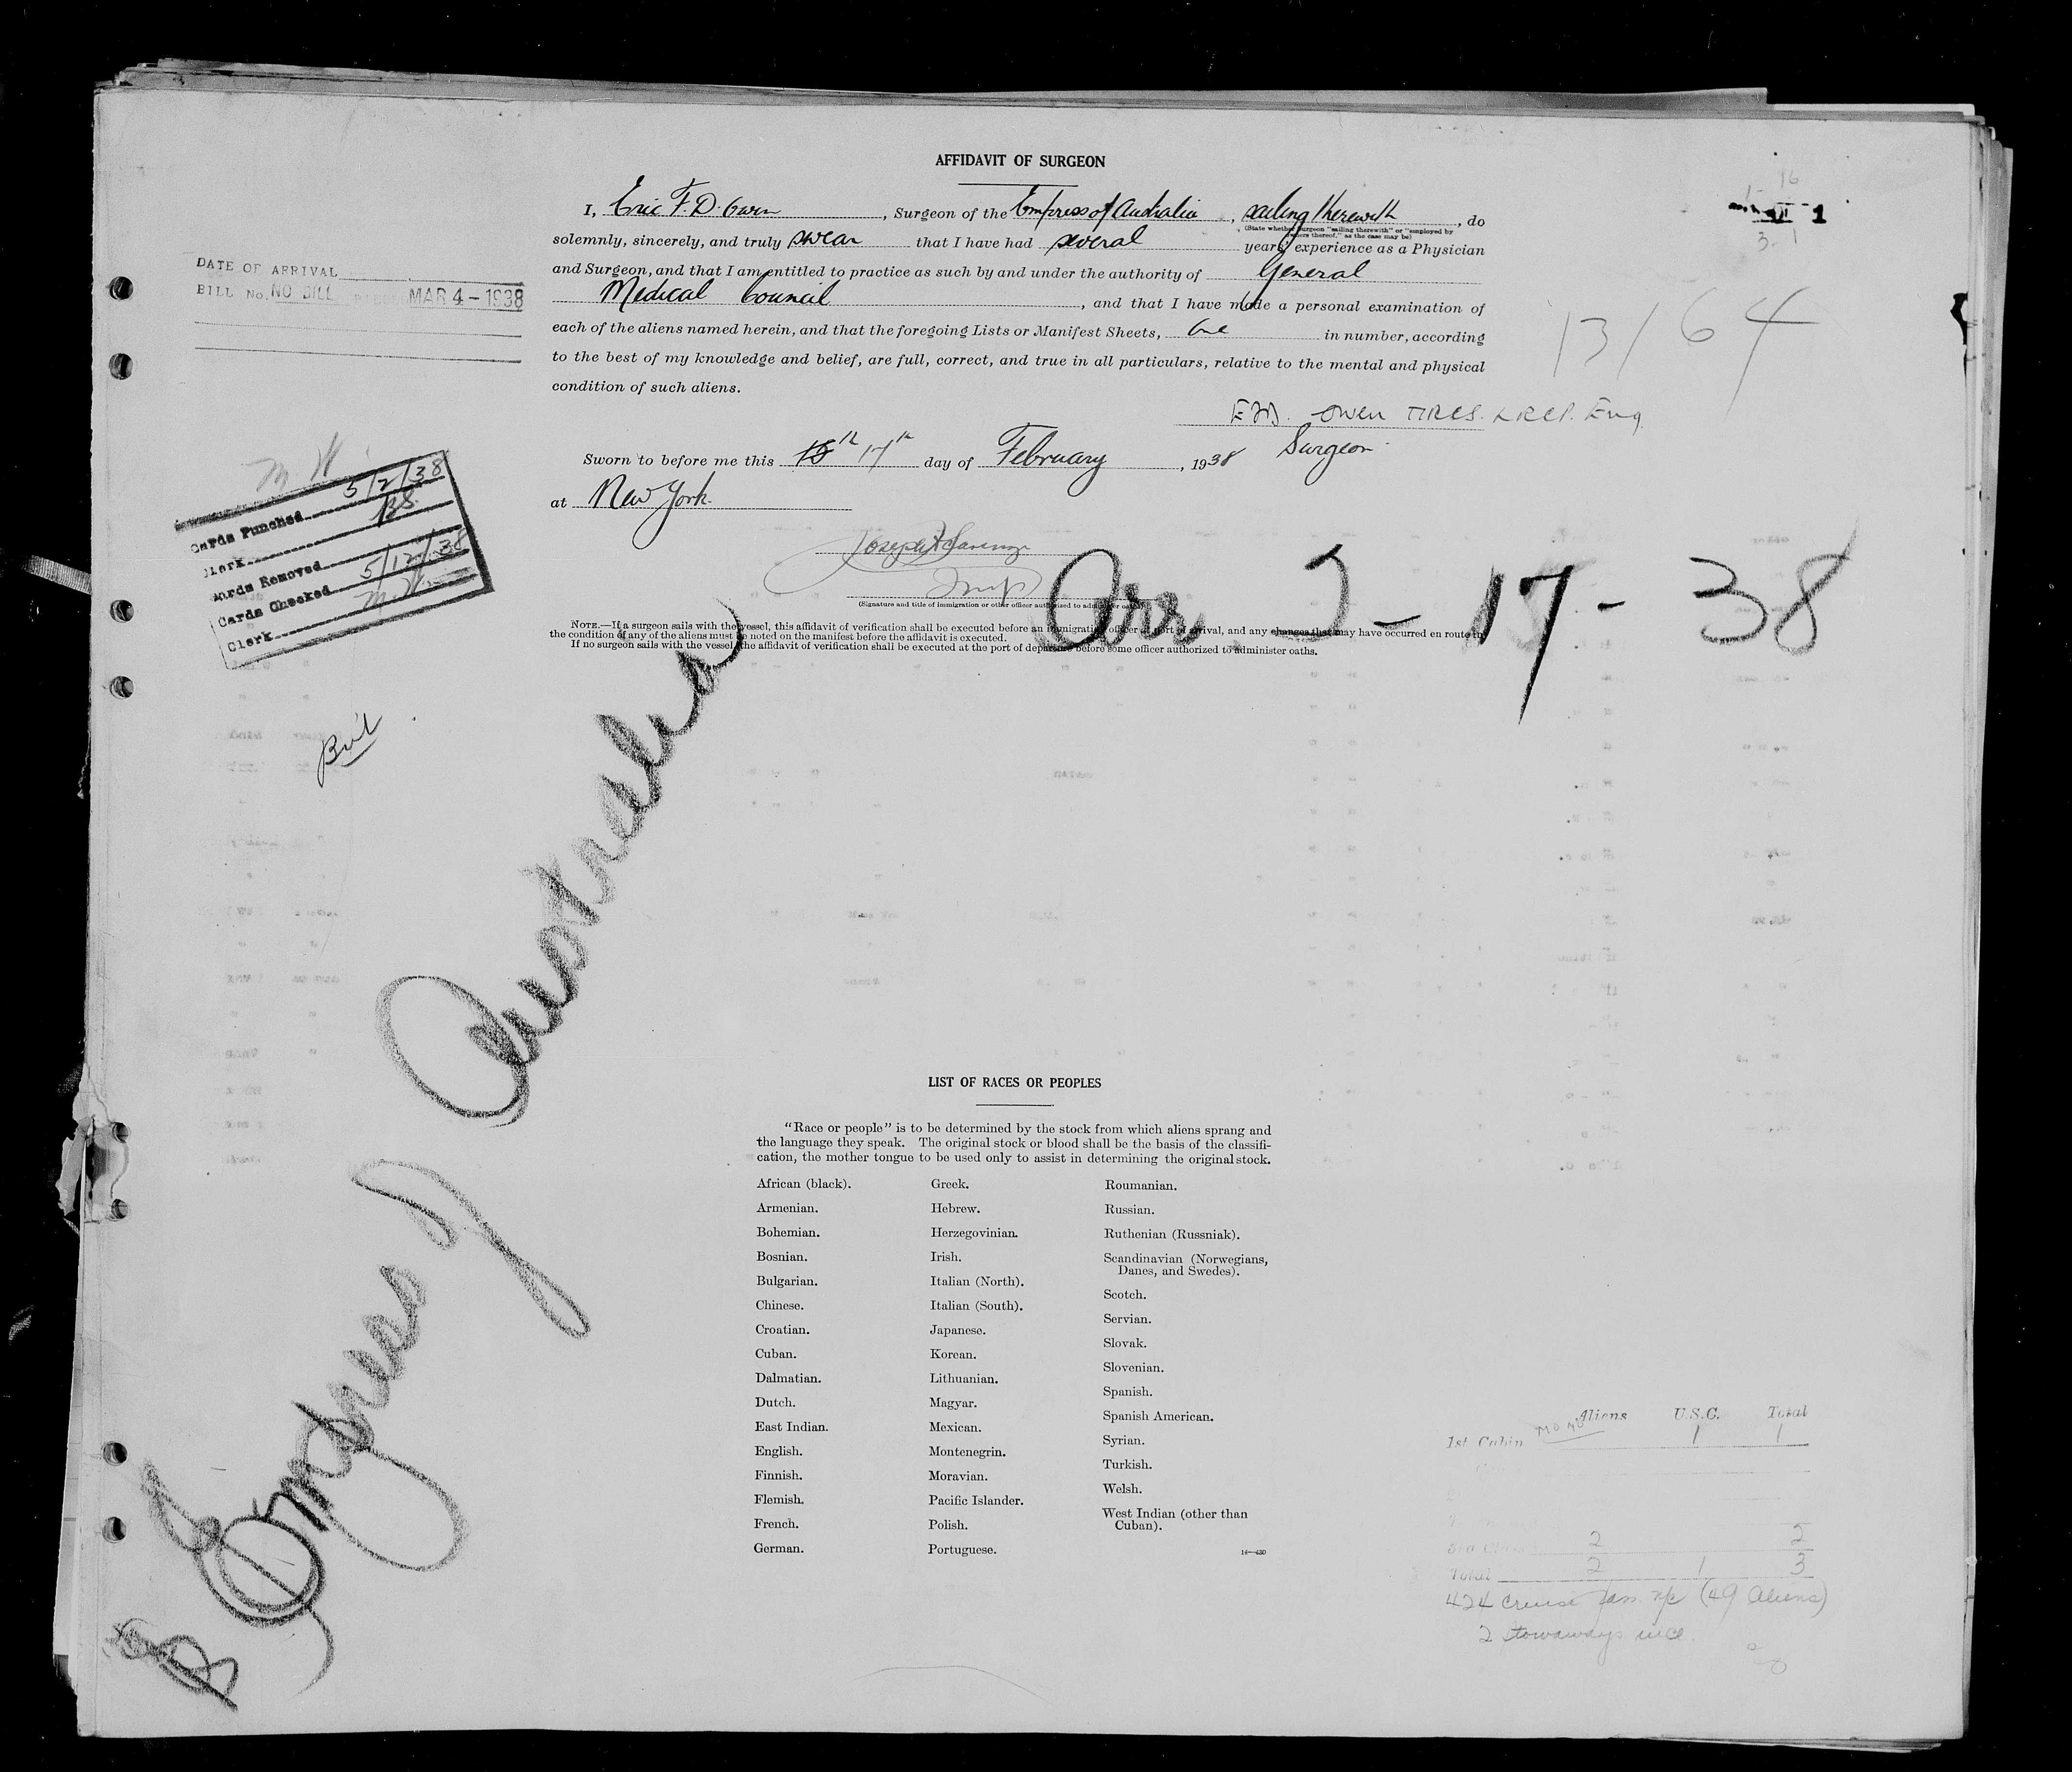 AFFIDAVIT OF SURGEON
I, Eric F. D. Owen, Surgeon of the Empress of Australia, sailing therewith, do
(State whether Surgeon "sailing therewith" or "employed by owners thereof," as the case may be)
solemnly, sincerely, and truly swear that I have had several years' experience as a Physician
and Surgeon, and that I am entitled to practice as such by and under the authority of General
Medical Council, and that I have made a personal examination of
each of the aliens named herein, and that the foregoing Lists or Manifest Sheets, One in number, according
to the best of my knowledge and belief, are full, correct, and true in all particulars, relative to the mental and physical
condition of such aliens.
Owen MRCS. LRCP. Eng
Surgeon
Sworn to before me this 18th 17th day of February, 1938
at New York.
Joseph
Insp
(Signature and title of immigration or other officer authorized to administer oaths)
NOTE.—If a surgeon sails with the vessel, this affidavit of verification shall be executed before an immigration officer at port of arrival, and any changes that may have occurred en route in
the condition of any of the aliens must be noted on the manifest before the affidavit is executed.
If no surgeon sails with the vessel, the affidavit of verification shall be executed at the port of departure before some officer authorized to administer oaths.
DATE OF ARRIVAL
BILL No. NO BILL MAR 4 - 1938
1
13/64
M. H.
Cards Punched 5/2/38
Clerk BS
Cards Removed
Cards Checked 5/12/38
Clerk M. H.
Arr 2-17-38
Empress of Australia
LIST OF RACES OR PEOPLES
"Race or people" is to be determined by the stock from which aliens sprang and
the language they speak. The original stock or blood shall be the basis of the classifi-
cation, the mother tongue to be used only to assist in determining the original stock.
African (black).
Armenian.
Bohemian.
Bosnian.
Bulgarian.
Chinese.
Croatian.
Cuban.
Dalmatian.
Dutch.
East Indian.
English.
Finnish.
Flemish.
French.
German.
Greek.
Hebrew.
Herzegovinian.
Irish.
Italian (North).
Italian (South).
Japanese.
Korean.
Lithuanian.
Magyar.
Mexican.
Montenegrin.
Moravian.
Pacific Islander.
Polish.
Portuguese.
Roumanian.
Russian.
Ruthenian (Russniak).
Scandinavian (Norwegians,
Danes, and Swedes).
Scotch.
Servian.
Slovak.
Slovenian.
Spanish.
Spanish American.
Syrian.
Turkish.
Welsh.
West Indian (other than
Cuban).
14—430
Aliens U.S.C. Total
1st Cabin 1 1
3rd Class 2 2
Total 2 1 3
424 cruise pass n/c (49 Aliens)
2 stowaways incl.